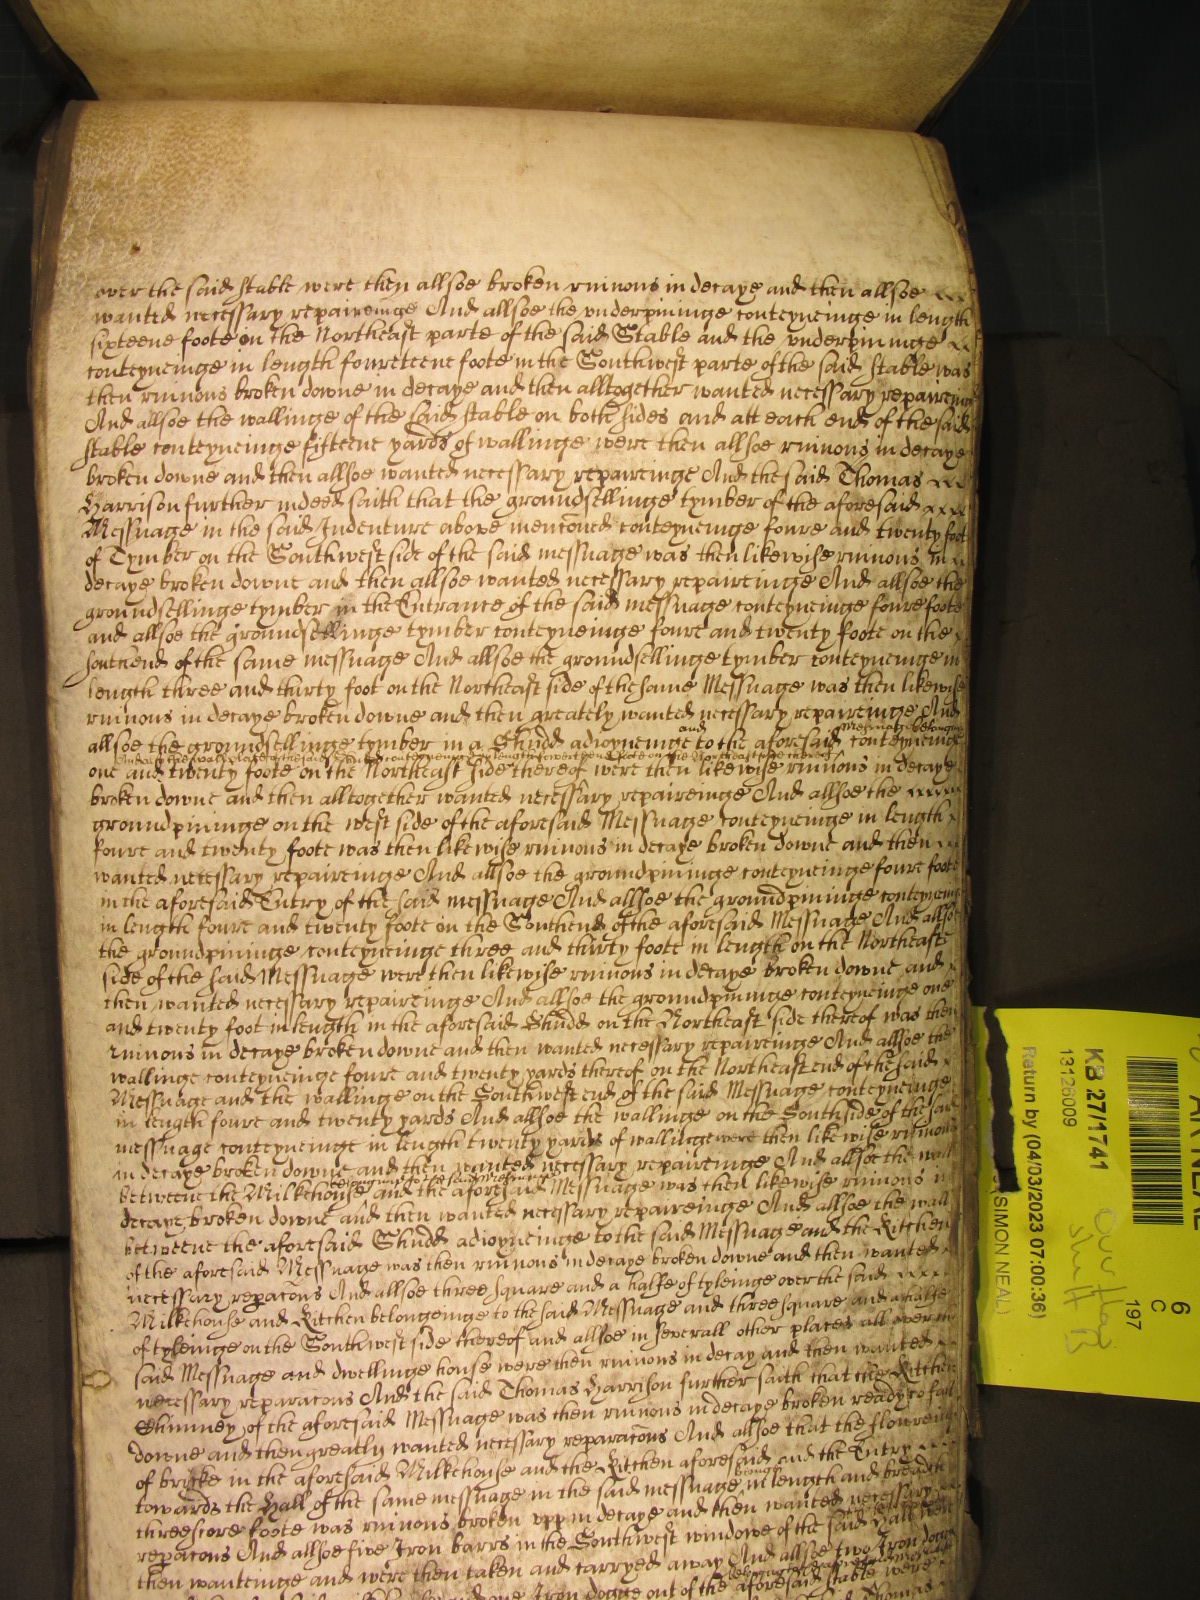 over the said stable were then allsoe broken ruinous in decaye and then allsoe
wanted necessary repaireinge And allsoe the underpininge conteyneinge in length
sixteene foote on the Northeast parte of the said Stable and the underpininge
conteyneinge in length foureteene foote in the Southwest parte of the said stable was
then ruinous broken downe in decaye and then alltogether wanted necessary repaireinge
And allsoe the wallinge of the said stable on both sides and att each end of the said
stable conteyneinge fifteene yards of wallinge were then allsoe ruinous in decaye
broken downe and then allsoe wanted necessary repaireinge And the said Thomas
Harrison further indeed saith that the groundsellinge tymber of the aforesaid
Messuage in the said Indenture above menconed conteyneinge foure and twenty foot
of Tymber on the Southwest side of the said messuage was then likewise ruinous in
decaye broken downe and then allsoe wanted necessary repaireinge And allsoe the
groundsellinge tymber in the Entrance of the said messuage conteyneinge foure foote
and allsoe the groundsellinge tymber conteyneinge foure and twenty foote on the
southend of the same messuage And allsoe the groundsellinge tymber conteyneinge in
length three and thirty foot on the Northeast side of the same Messuage was then likewise
ruinous in decaye broken downe and then greately wanted necessary repaireinge And
and Messuage belonginge
allsoe the groundsellinge tymber in a Shudd adioyneinge to the aforesaid conteyneinge
one and twenty foote on the Northeast side thereof were then likewise ruinous in decaye
broken downe and then alltogether wanted necessary repaireinge And allsoe the
groundpininge on the west side of the aforesaid Messuage conteyneinge in length
foure and twenty foote was then likewise ruinous in decaye broken downe and then
wanted necessary repaireinge And allsoe the groundpininge conteyneinge foure foote
in the aforesaid Entry of the said messuage And allsoe the groundpininge conteyneinge
in length foure and twenty foote on the Southend of the aforesaid Messuage And allsoe
the groundpininge conteyneinge three and thirty foote in length on the Northeaste
side of the said Messuage were then likewise ruinous in decaye broken downe and
then wanted necessary repaireinge And allsoe the groundpininge conteyneinge one
and twenty foot in length in the aforesaid Shudd on the Northeast side thereof was then
ruinous in decaye broken downe and then wanted necessary repaireinge And allsoe the
wallinge conteyneinge foure and twenty yards thereof on the Northeast end of the said
Messuage and the wallinge on the Southwest end of the said Messuage conteyneinge
in length foure and twenty yards And allsoe the wallinge on the Southside of the said
messuage conteyneinge in length twenty yards of wallinge were then likewise ruinous
in decaye broken downe and then wanted necessary repaireinge And allsoe the wall
belonginge to the said Messuage
betweene the Milkehouse and the aforesaid Messuage was then likewise ruinous in
decaye broken downe and then wanted necessary repaireinge And allsoe the wall
betweene the aforesaid Shudd adioyneinge to the said Messuage and the Kitchen
of the aforesaid Messuage was then ruinous in decaye broken downe and then wanted
necessary reparacons And allsoe three square and a halfe of tyleinge over the said
Milkehouse and Kitchen belongeinge to the said Messuage and three square and a halfe
of tyleinge on the Southwest side thereof and allsoe in severall other places all over
said Messuage and dwellinge house were then ruinous in decay and then wanted
necessary reparacons And the said Thomas Harrison further saith that the Kitchen
Chimney of the aforesaid Messuage was then ruinous in decaye broken ready to fall
downe and then greatly wanted necessary reparacons And allsoe that the flooreinge
of bricke in the aforesaid Milkehouse and the Kitchen aforesaid and the Entry
towards the Hall of the same messuage in the said messuage in length and breadth
threescore foote was ruinous broken upp in decaye and then wanted necessary
repacons And allsoe five Iron barrs in the Southwest windowe of the said Hall were
then wanteinge and were then taken and carryed away And allsoe two Iron
one Iron dogge out of the aforesaid stable were
KB 27/1741
13126009
Return by (04/03/2023 07:00:36)
(SIMON NEAL)
6
C
197